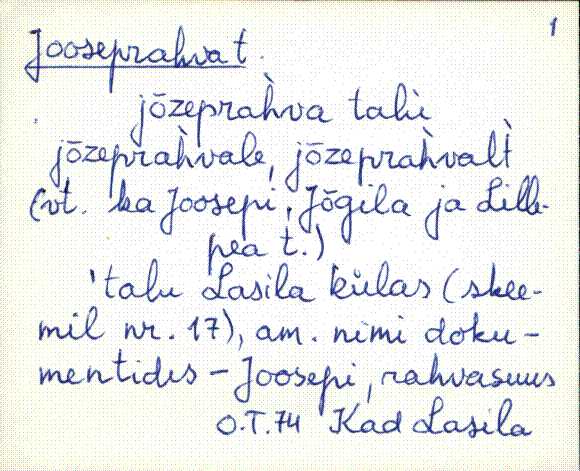 1
Jooseprahva t.
jōzeprah̀va talù
jōzeprah̀vale, jōzeprah̀valt̀
(vt. ka Joosepi, Jōgila ja Lille-
pea t.)
'talu Lasila külas (skee-
mil nr. 17), am. nimi doku-
mentides – Joosepi, rahvasuus
O.T.74 Kad Lasila